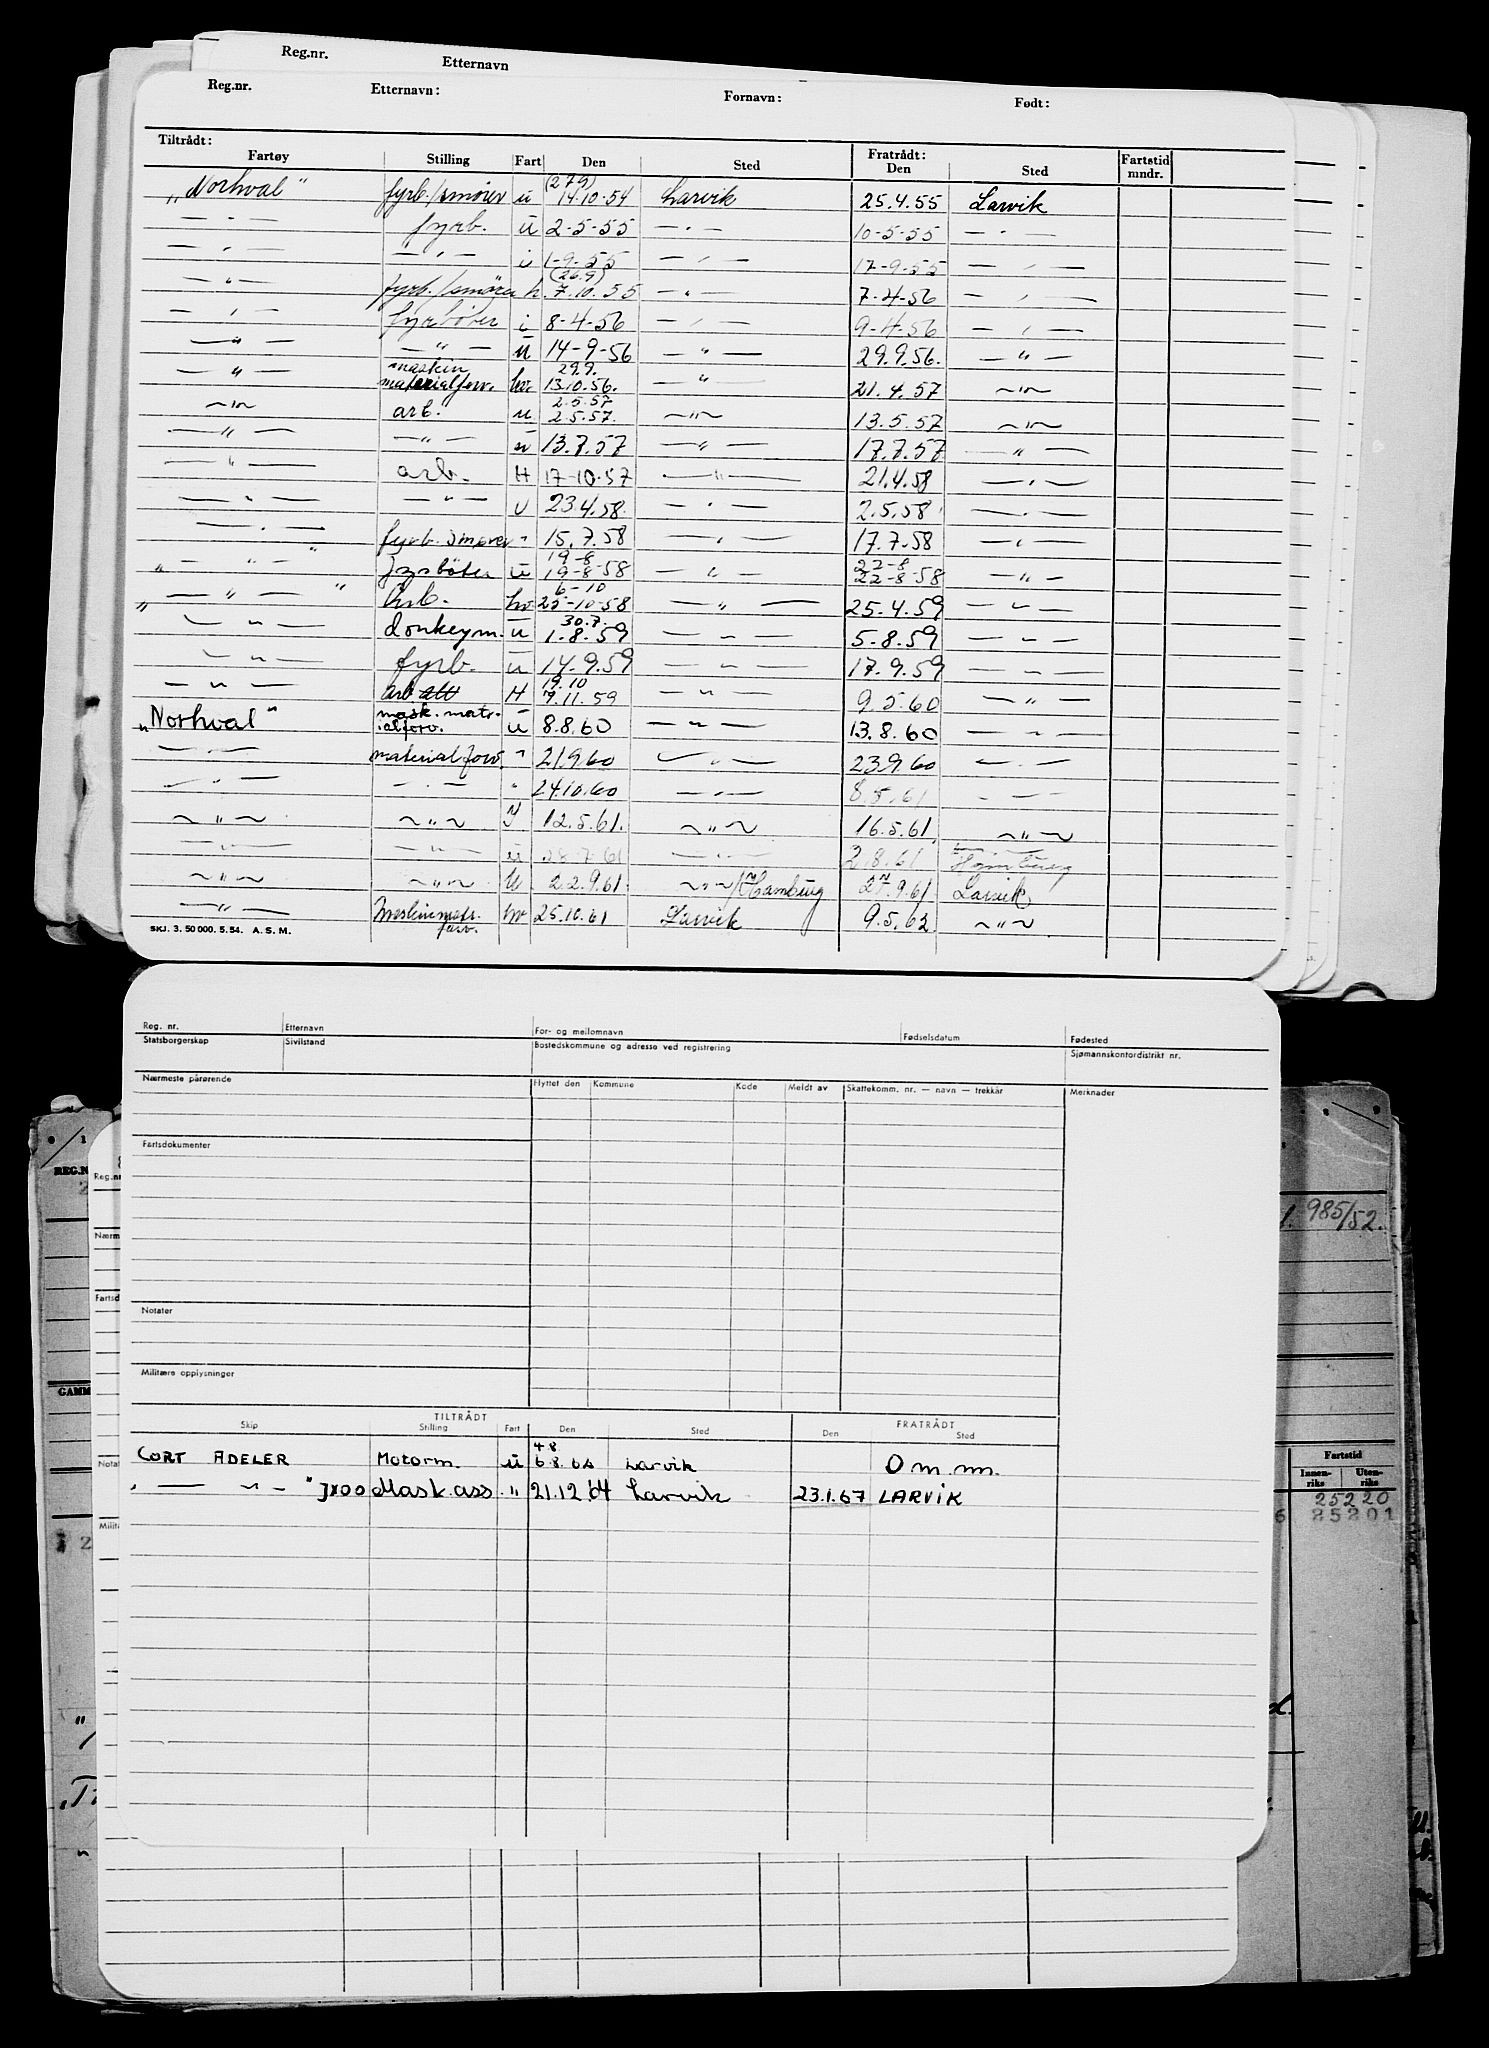 Reg.nr. Etternavn
Reg.nr. Etternavn: Fornavn: Født:
Tiltrådt: Fratrådt:
Fartøy Stilling Fart Den Sted Den Sted Fartstid mndr.
(27.9)
„Norhval" fyrb./smører u 14.10.54 Larvik 25.4.55 Larvik
— " — fyrb. u 2-5-55 — " — 10-5-55 — " —
— " — — " — u 1-9-55 — " — 17-9-55 — " —
(26.9)
— " — fyrb./smører h. 7.10.55 — " — 7-4-56 — " —
— " — fyrbøter i 8-4-56 — " — 9-4-56 — " —
— " — — " — u 14-9-56 — " — 29.9.56. — " —
maskin 29.9.
— " — materialforv. hv. 13.10.56. — " — 21.4.57 — " —
2.5.57
— " — arb. u 2.5.57. — " — 13.5.57 — " —
— " — — " — u 13.7.57 — " — 17.7.57 — " —
— " — arb. H 17-10-57 — " — 21.4.58 — " —
— " — — " — U 23.4.58. — " — 2.5.58 — " —
— " — fyrb. smører " 15.7.58 — " — 17.7.58 — " —
19-8 22-8
" — " — " fyrbøter u 19-8-58 — " — 22-8-58 — " —
6-10
" — " — " Arb. hv 25-10-58 — " — 25.4.59 — " —
30.7.
— " — donkeym. u 1.8.59 — " — 5.8.59 — " —
— " — fyrb. u 14.9.59 — " — 17.9.59 — " —
19.10
— " — arb att H 7.11.59 — " — 9.5.60 — " —
mask. matr-
„Norhval" ialforv. u 8.8.60 — " — 13.8.60 — " —
— " — materialforv. " 21.9.60 — " — 23.9.60 — " —
— " — — " — " 24.10.60 — " — 8.5.61 — " —
— " — — " — 12.5.61. — " — 16.5.61. — " —
— " — — " — u 28.7.61 — " — 2.8.61 Hamburg
— " — — " — U 22.9.61. — " — Hamburg 27.9.61 Larvik
— " — Maskinmatr. forv. hv 25.10.61 Larvik 9.5.62 — " —
SKJ. 3. 50 000. 5. 54. A. S. M.
Reg. nr. Etternavn For- og mellomnavn Fødselsdatum Fødested
Statsborgerskap Sivilstand Bostedskommune og adresse ved registrering Sjømannskontordistrikt nr.
Nærmeste pårørende Flyttet den Kommune Kode Meldt av Skattekomm. nr. — navn — trekkår Merknader
Fartsdokumenter
Notater
Militære opplysninger
TILTRÅDT FRATRÅDT
Skip Stilling Fart Den Sted Den Sted
4 8
CORT ADELER Motorm. u 6.8.64 Larvik O m. m.
" — " — " JXOO Mask.ass " 21.12 64 Larvik 23.1.67 LARVIK
REG.N
Reg.nr
Nærm
Fartsd
GAMM
Notat
Milit
985/52.
Fartstid
Innenriks Utenriks
25220
6 25201